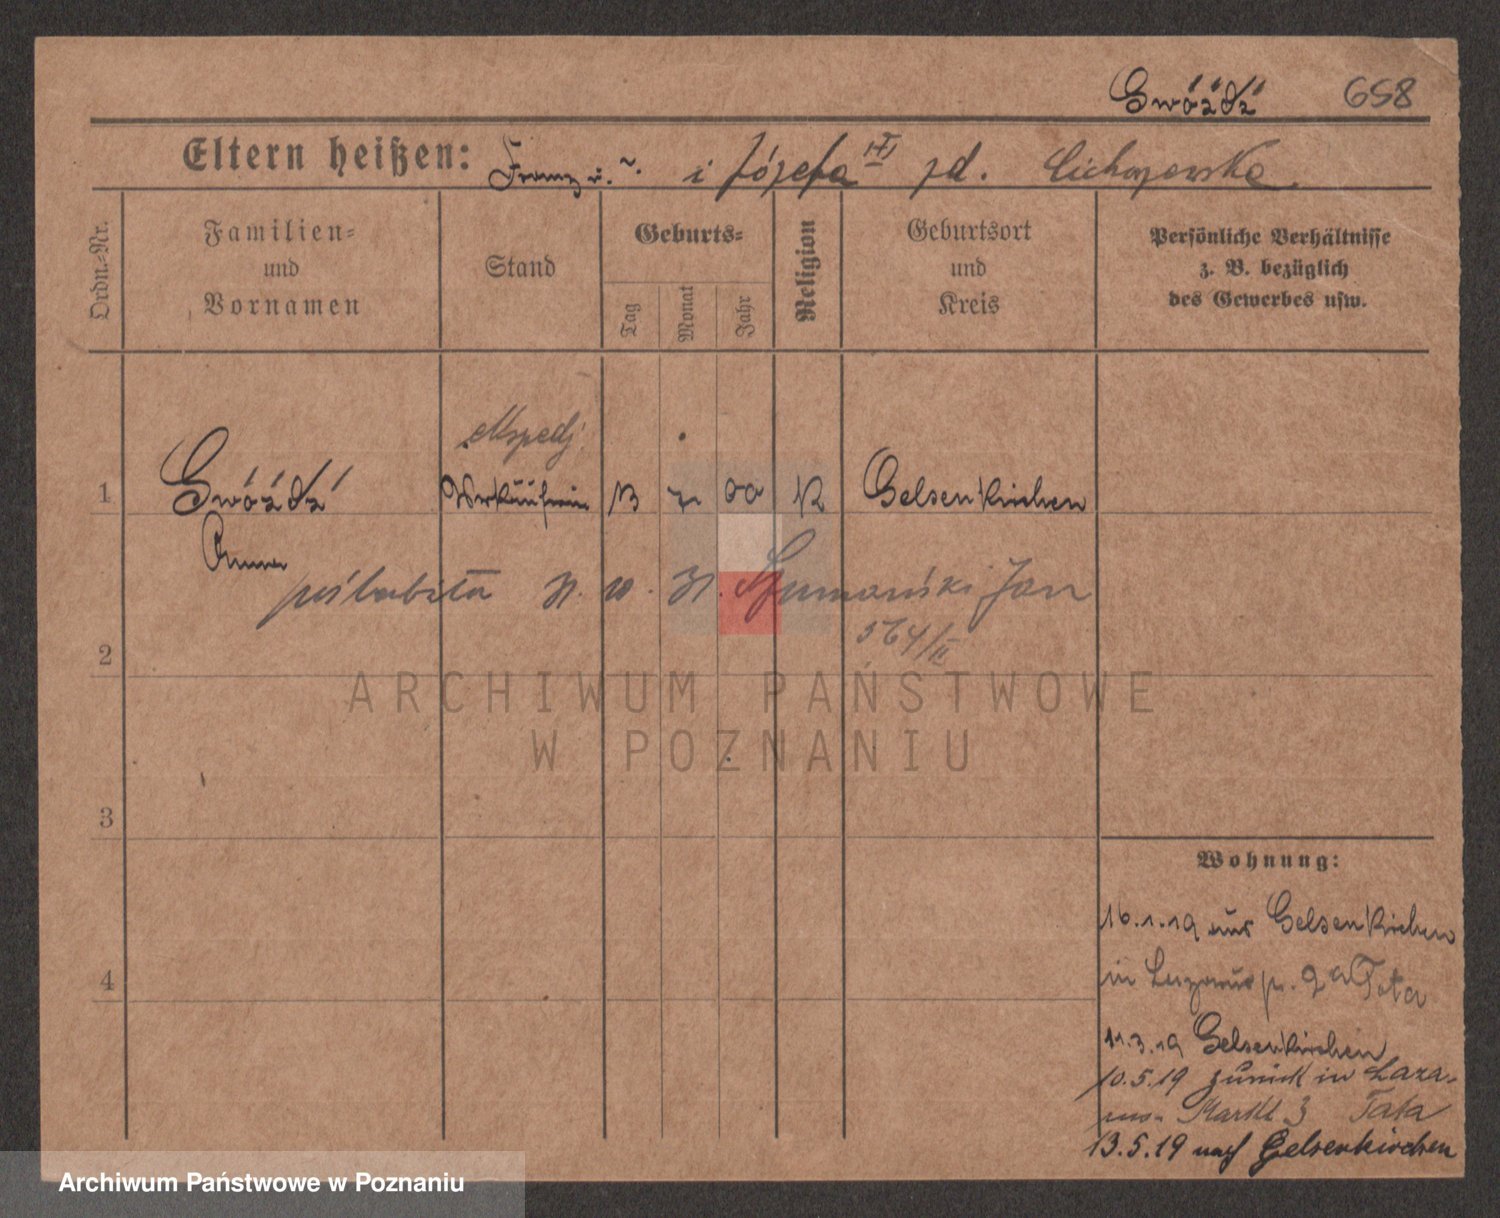 Gwóźdź 658
Eltern heißen: Franz u. i Józefa zd. Cichoszewska.
Ordn.-Nr.
Familien-
und
Vornamen
Stand
Geburts-
Tag
Monat
Jahr
Religion
Geburtsort
und
Kreis
Persönliche Verhältnisse
z. B. bezüglich
des Gewerbes usw.
ekspedj.
1 Gwóźdź Verkäuferin 13 7 00 K Gelsenkirchen
Anna
poślubiła Szumański Jan
564/II
2
ARCHIWUM PAŃSTWOWE
W POZNANIU
3
Wohnung:
16.1.19 aus Gelsenkirchen
in Lazarus
4
11.3.19 Gelsenkirchen
10.5.19 zurück in Laza-
rus- Markt 3 Tata
13.5.19 nach Gelsenkirchen
Archiwum Państwowe w Poznaniu